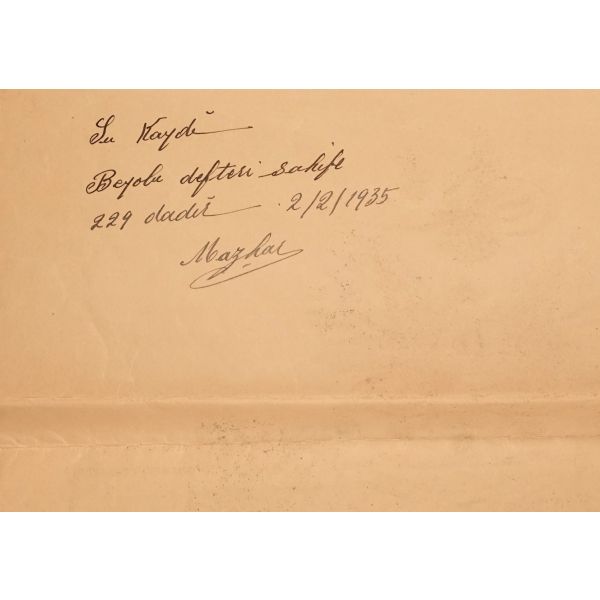 Su Kaydı
Beyolu defteri sahife
229 dadır 2/2/1935
Mazhar